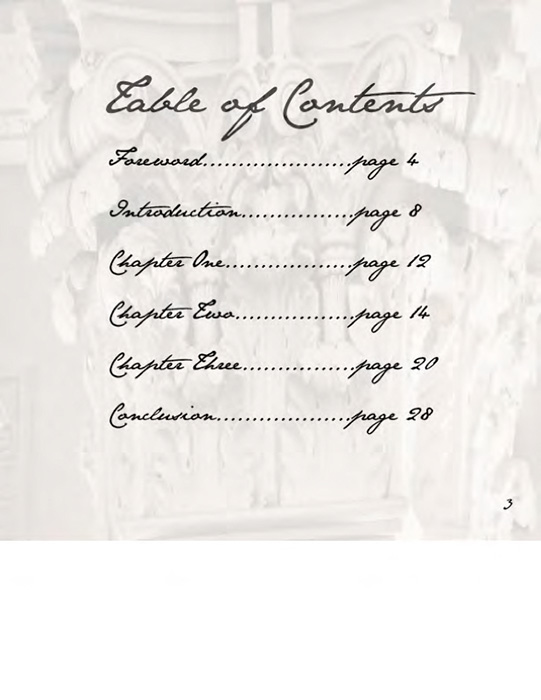 Table of Contents
Foreword.....................page 4
Introduction................page 8
Chapter One..................page 12
Chapter Two.................page 14
Chapter Three................page 20
Conclusion...................page 28
3